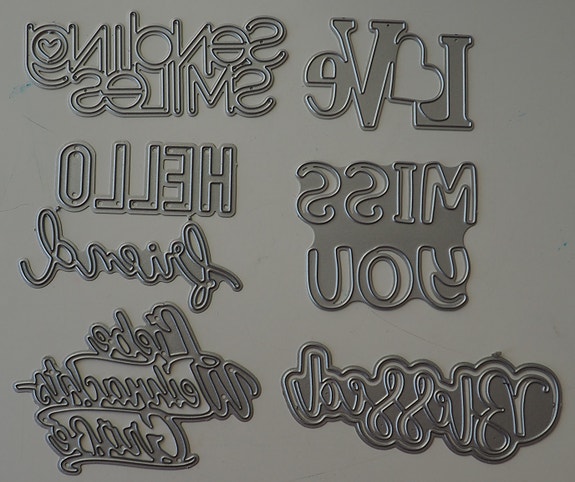 sending
SMILES
LOVE
HELLO
friend
MISS
YOU
Liebe
Weihnachts-
Grüße
Blessed